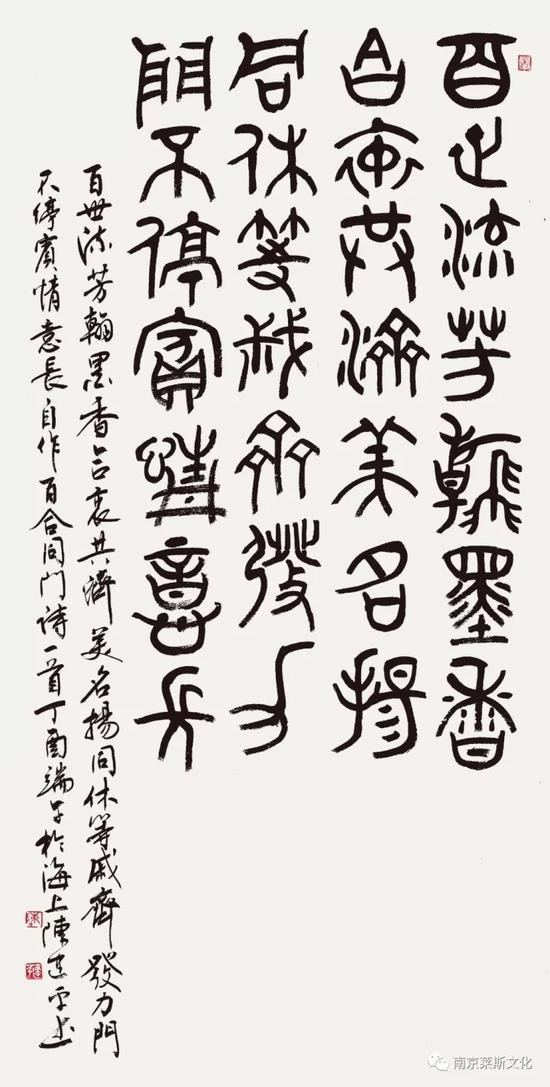 百世流芳翰墨香
合衷共濟美名揚
同休等戚齊發力
門不停賓情意長
百世流芳翰墨香合衷共濟美名揚同休等戚齊發力門
不停賓情意長自作百合同门诗一首丁酉端午於海上陳
南京莱斯文化